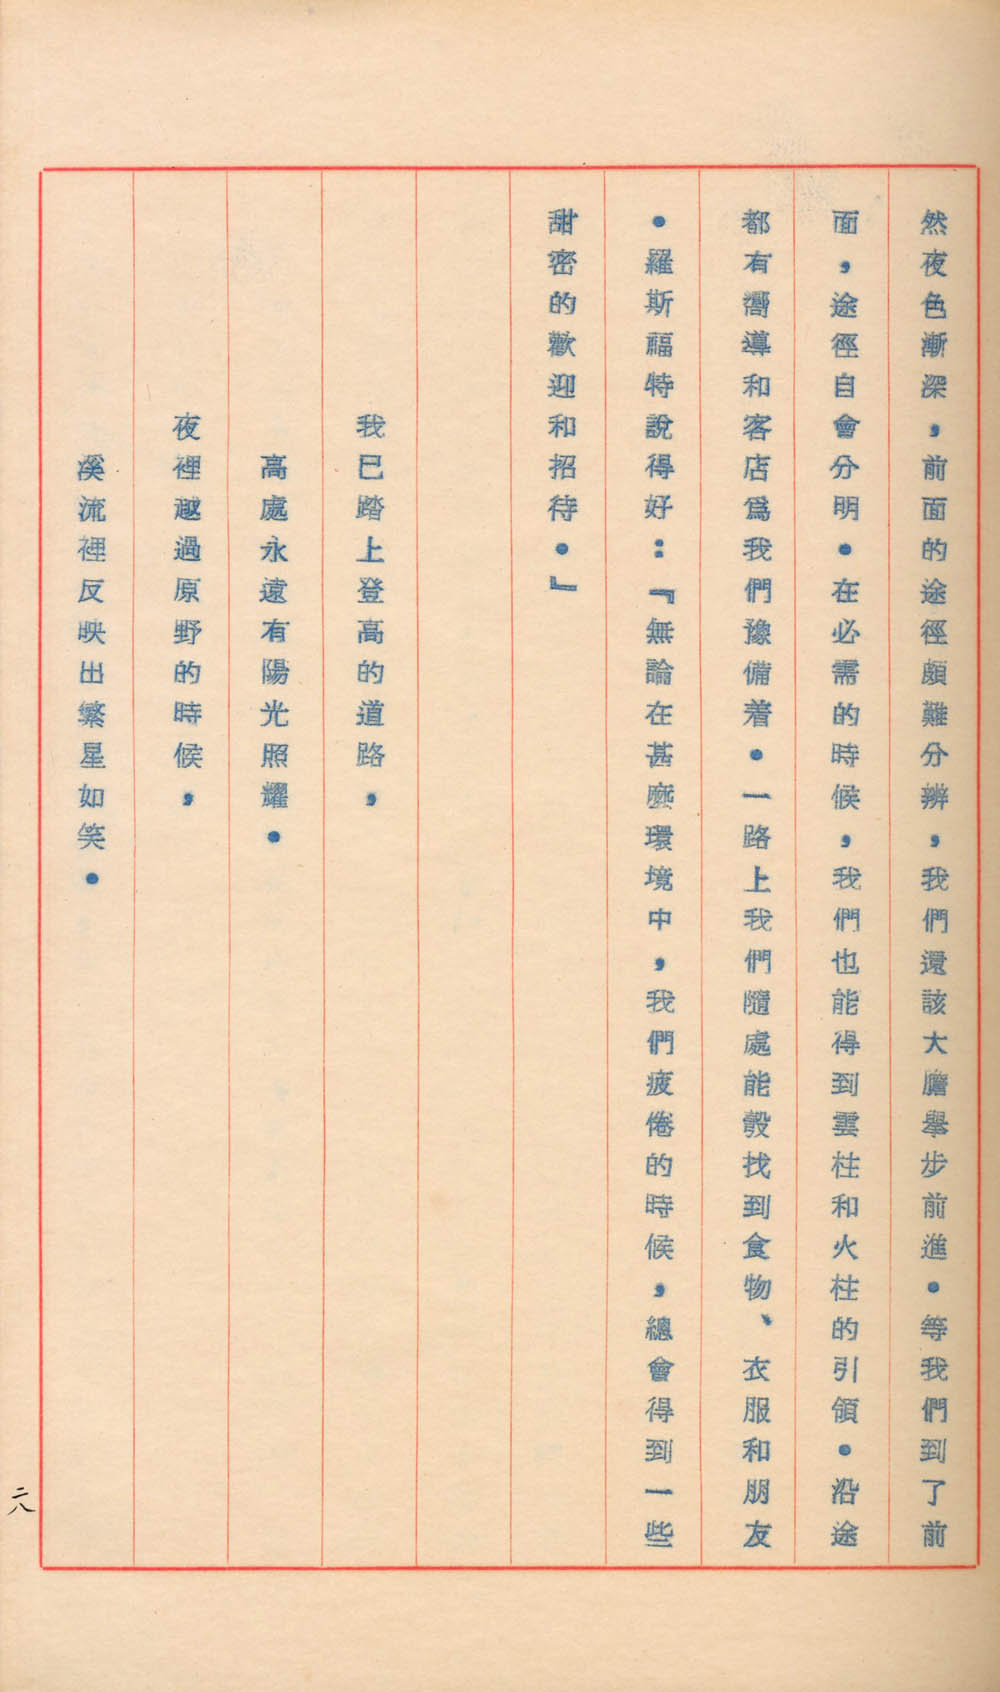 然夜色漸深，前面的途徑頗難分辨，我們還該大膽舉步前進．等我們到了前
面，途徑自會分明．在必需的時候，我們也能得到雲柱和火柱的引領．沿途
都有嚮導和客店爲我們豫備着．一路上我們隨處能彀找到食物、衣服和朋友
．羅斯福特說得好：『無論在甚麼環境中，我們疲倦的時候，總會得到一些
甜密的歡迎和招待．』
我已踏上登高的道路，
高處永遠有陽光照耀．
夜裡越過原野的時候，
溪流裡反映出繁星如笑．
二八